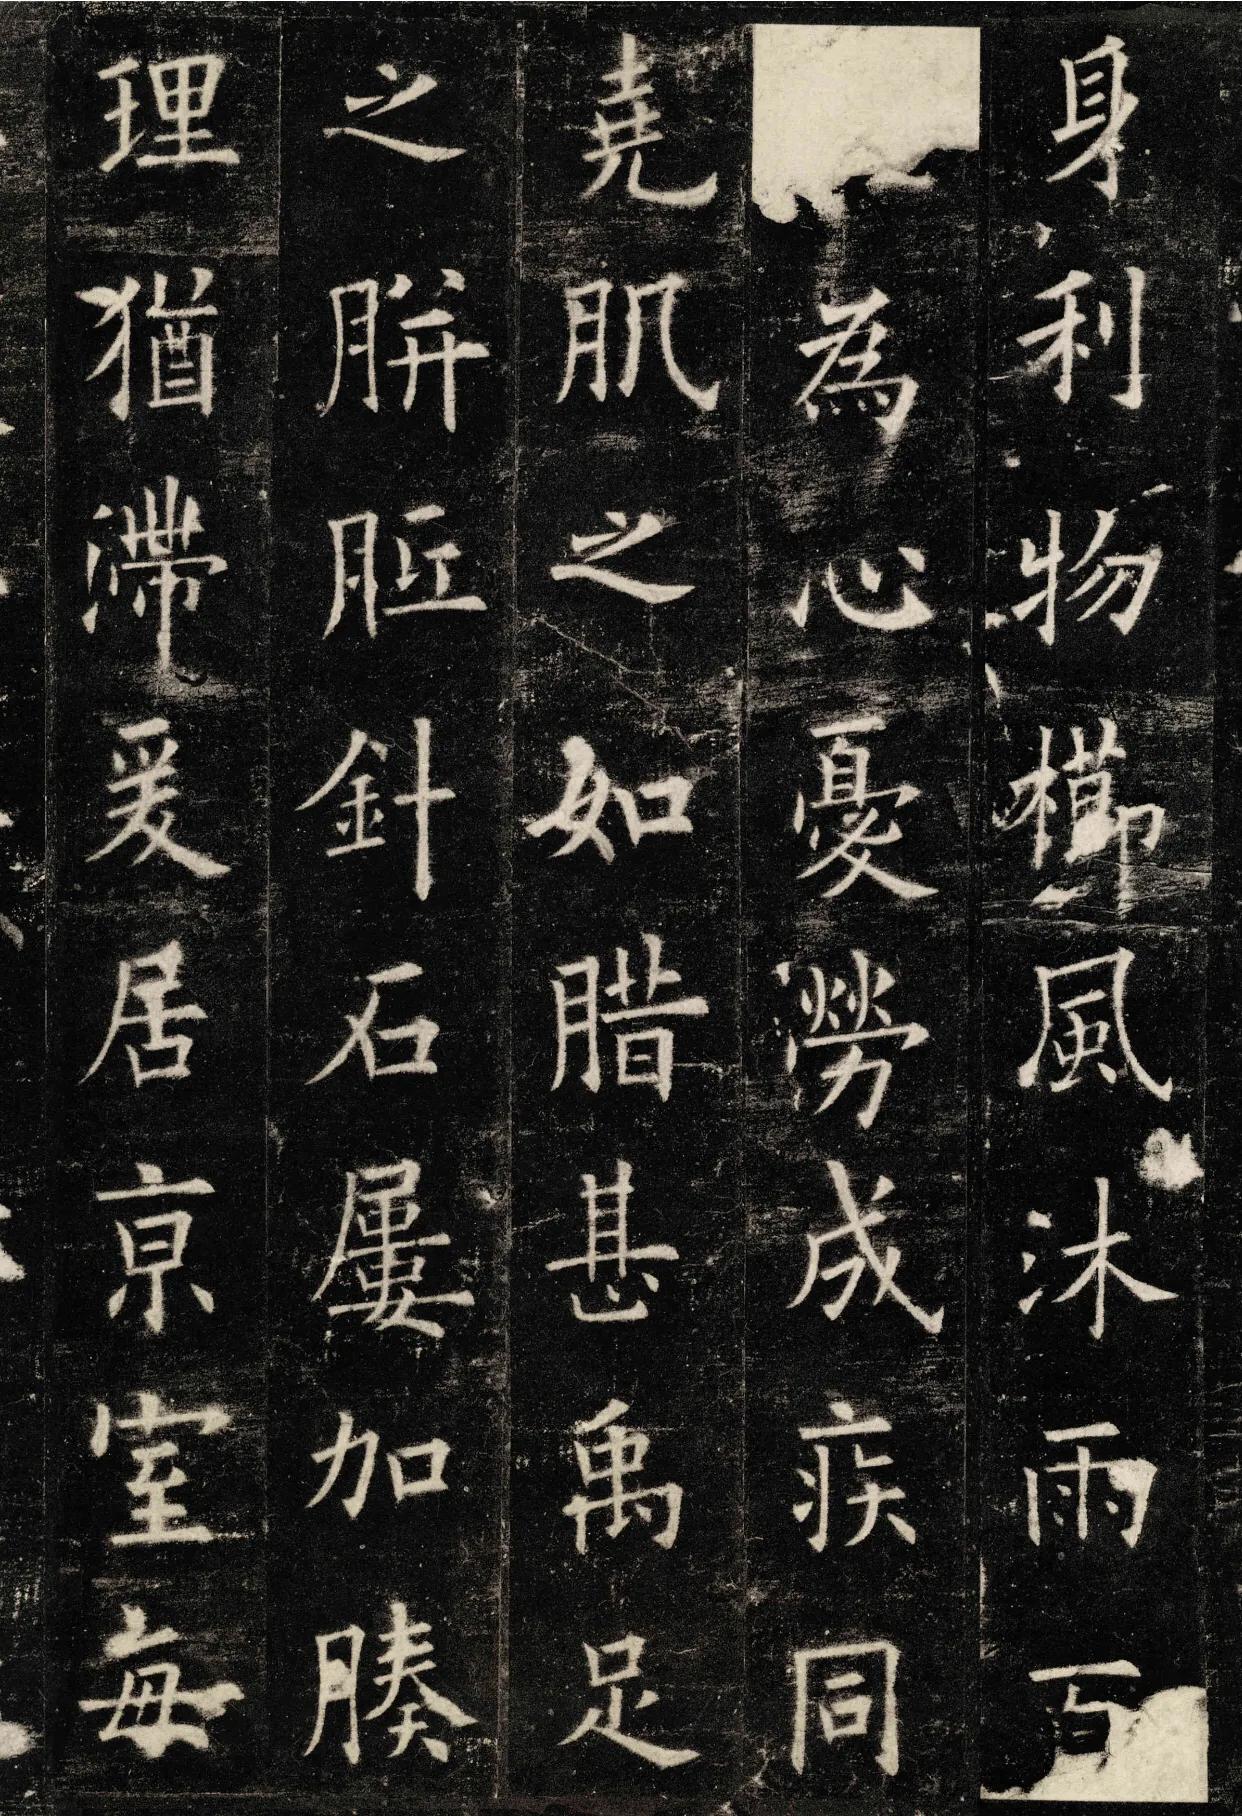 身利物櫛風沐雨百
為心憂勞成疾同
堯肌之如腊甚禹足
之胼胝針石屢加腠
理猶滯爰居京室每